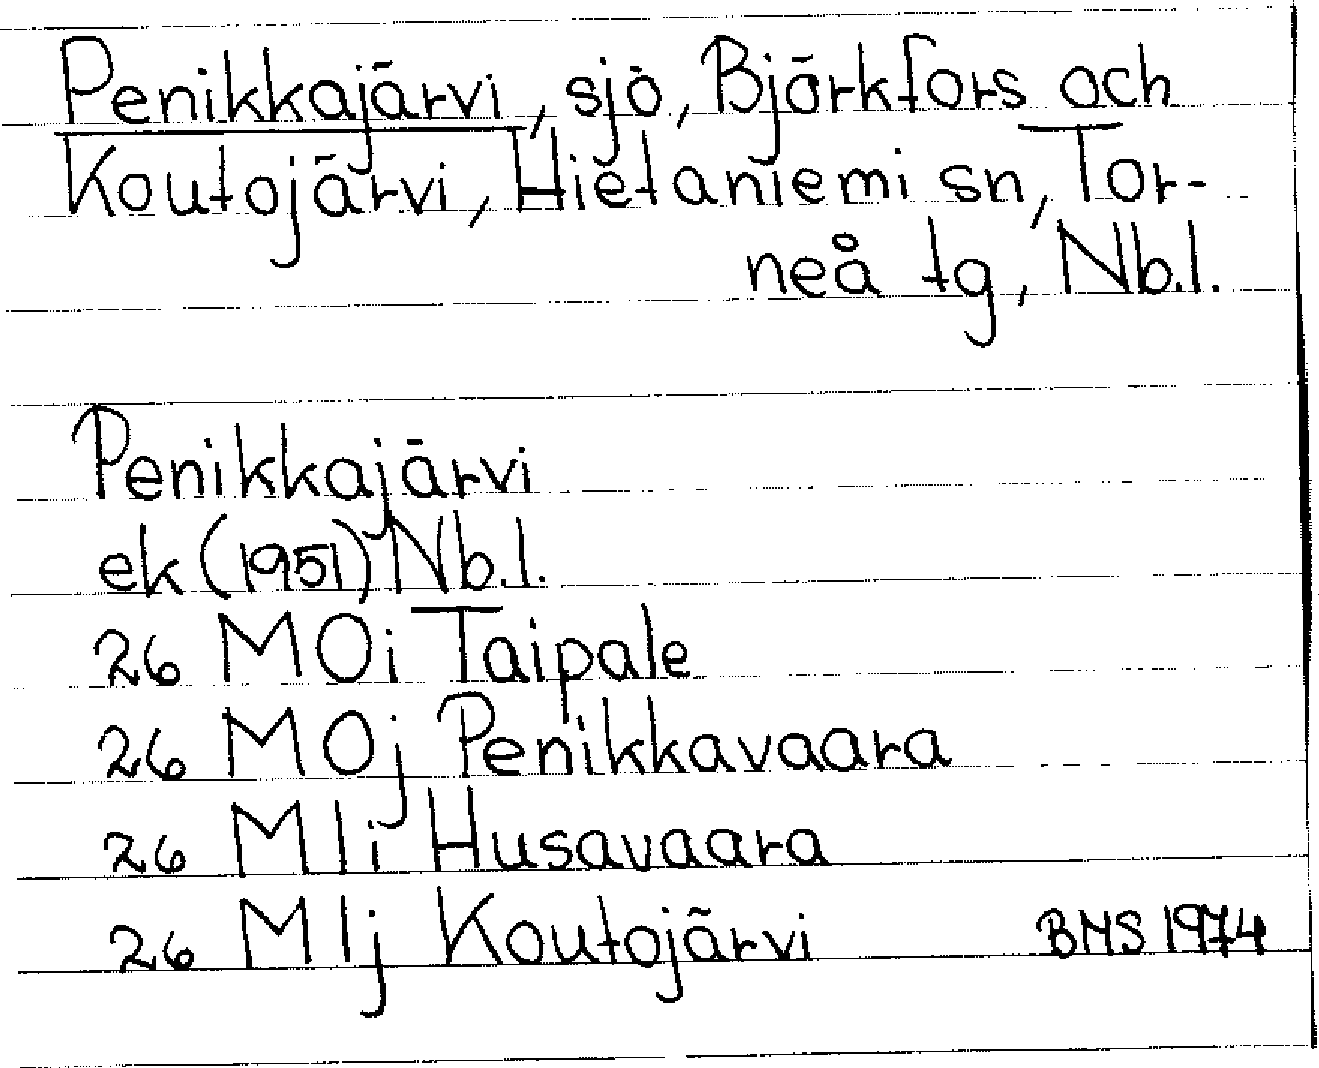 Penikkajärvi, sjö, Björkfors och
Koutojärvi, Hietaniemi sn, Tor-
neå tg, Nb.l.
Penikkajärvi
ek (1951) Nb.l.
26 M0i Taipale
26 M0j Penikkavaara
26 M1i Husavaara
26 M1j Koutojärvi BMS 1974